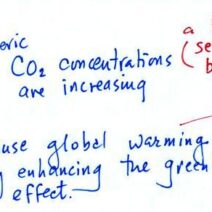 eric
a
CO₂ concentrations
(se
b
are increasing
use global warming
enhancing the green
effect.